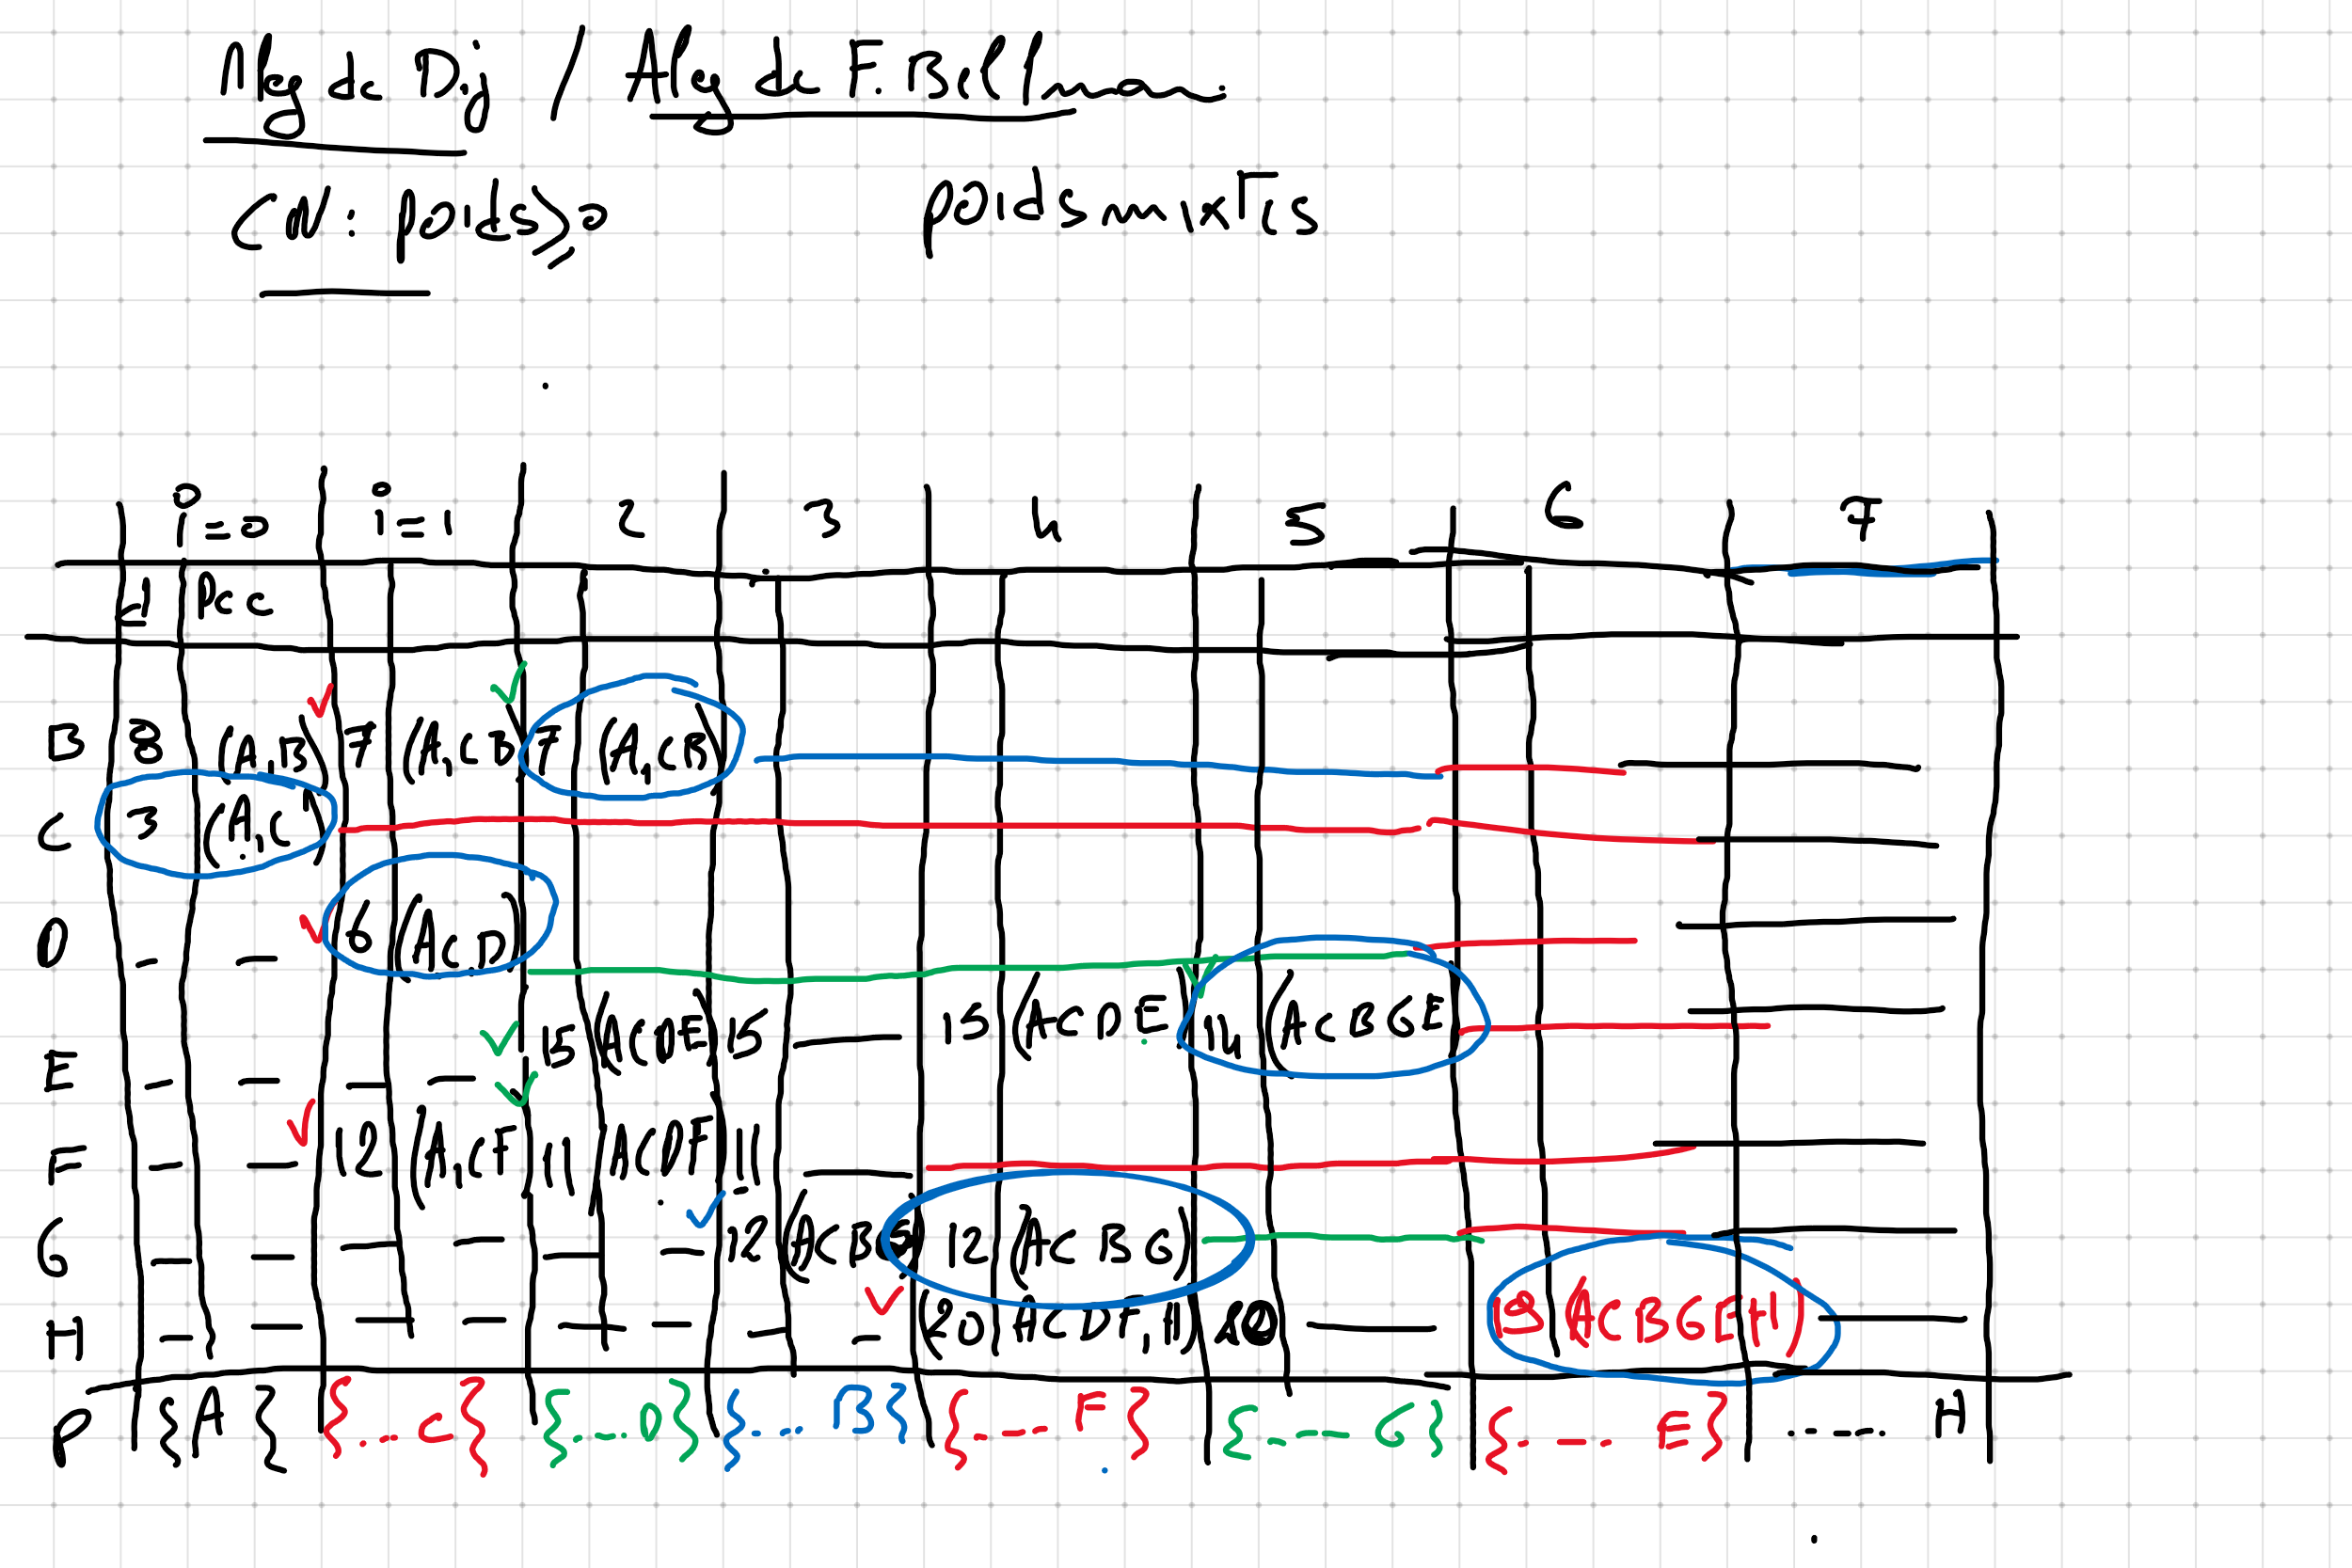 Algo de Dij / Algo de F. Bellman.
CN: poids ⩾ 0 poids mixTes
i=0 i=1 2 3 4 5 6 7
d Pcc
B 8 (A,B) 7 (A,C,B) 7 (A,C,B)
C 3 (A,C)
D - - 6 (A,C,D)
E - - - - 15 (ACDE) 15 — 15 (ACDE) 14 (ACBGE)
F - - 12 (A,C,F) 11 (ACDF) 11 —
G - - - - - - 12 (ACBG) 12 (ACBG)
H - - - - - - - - (20 (ACDF,H) — 19 (ACBGEH)
P {A} {...C} {...D} {...B} {...F} {...G} {...E} ...H